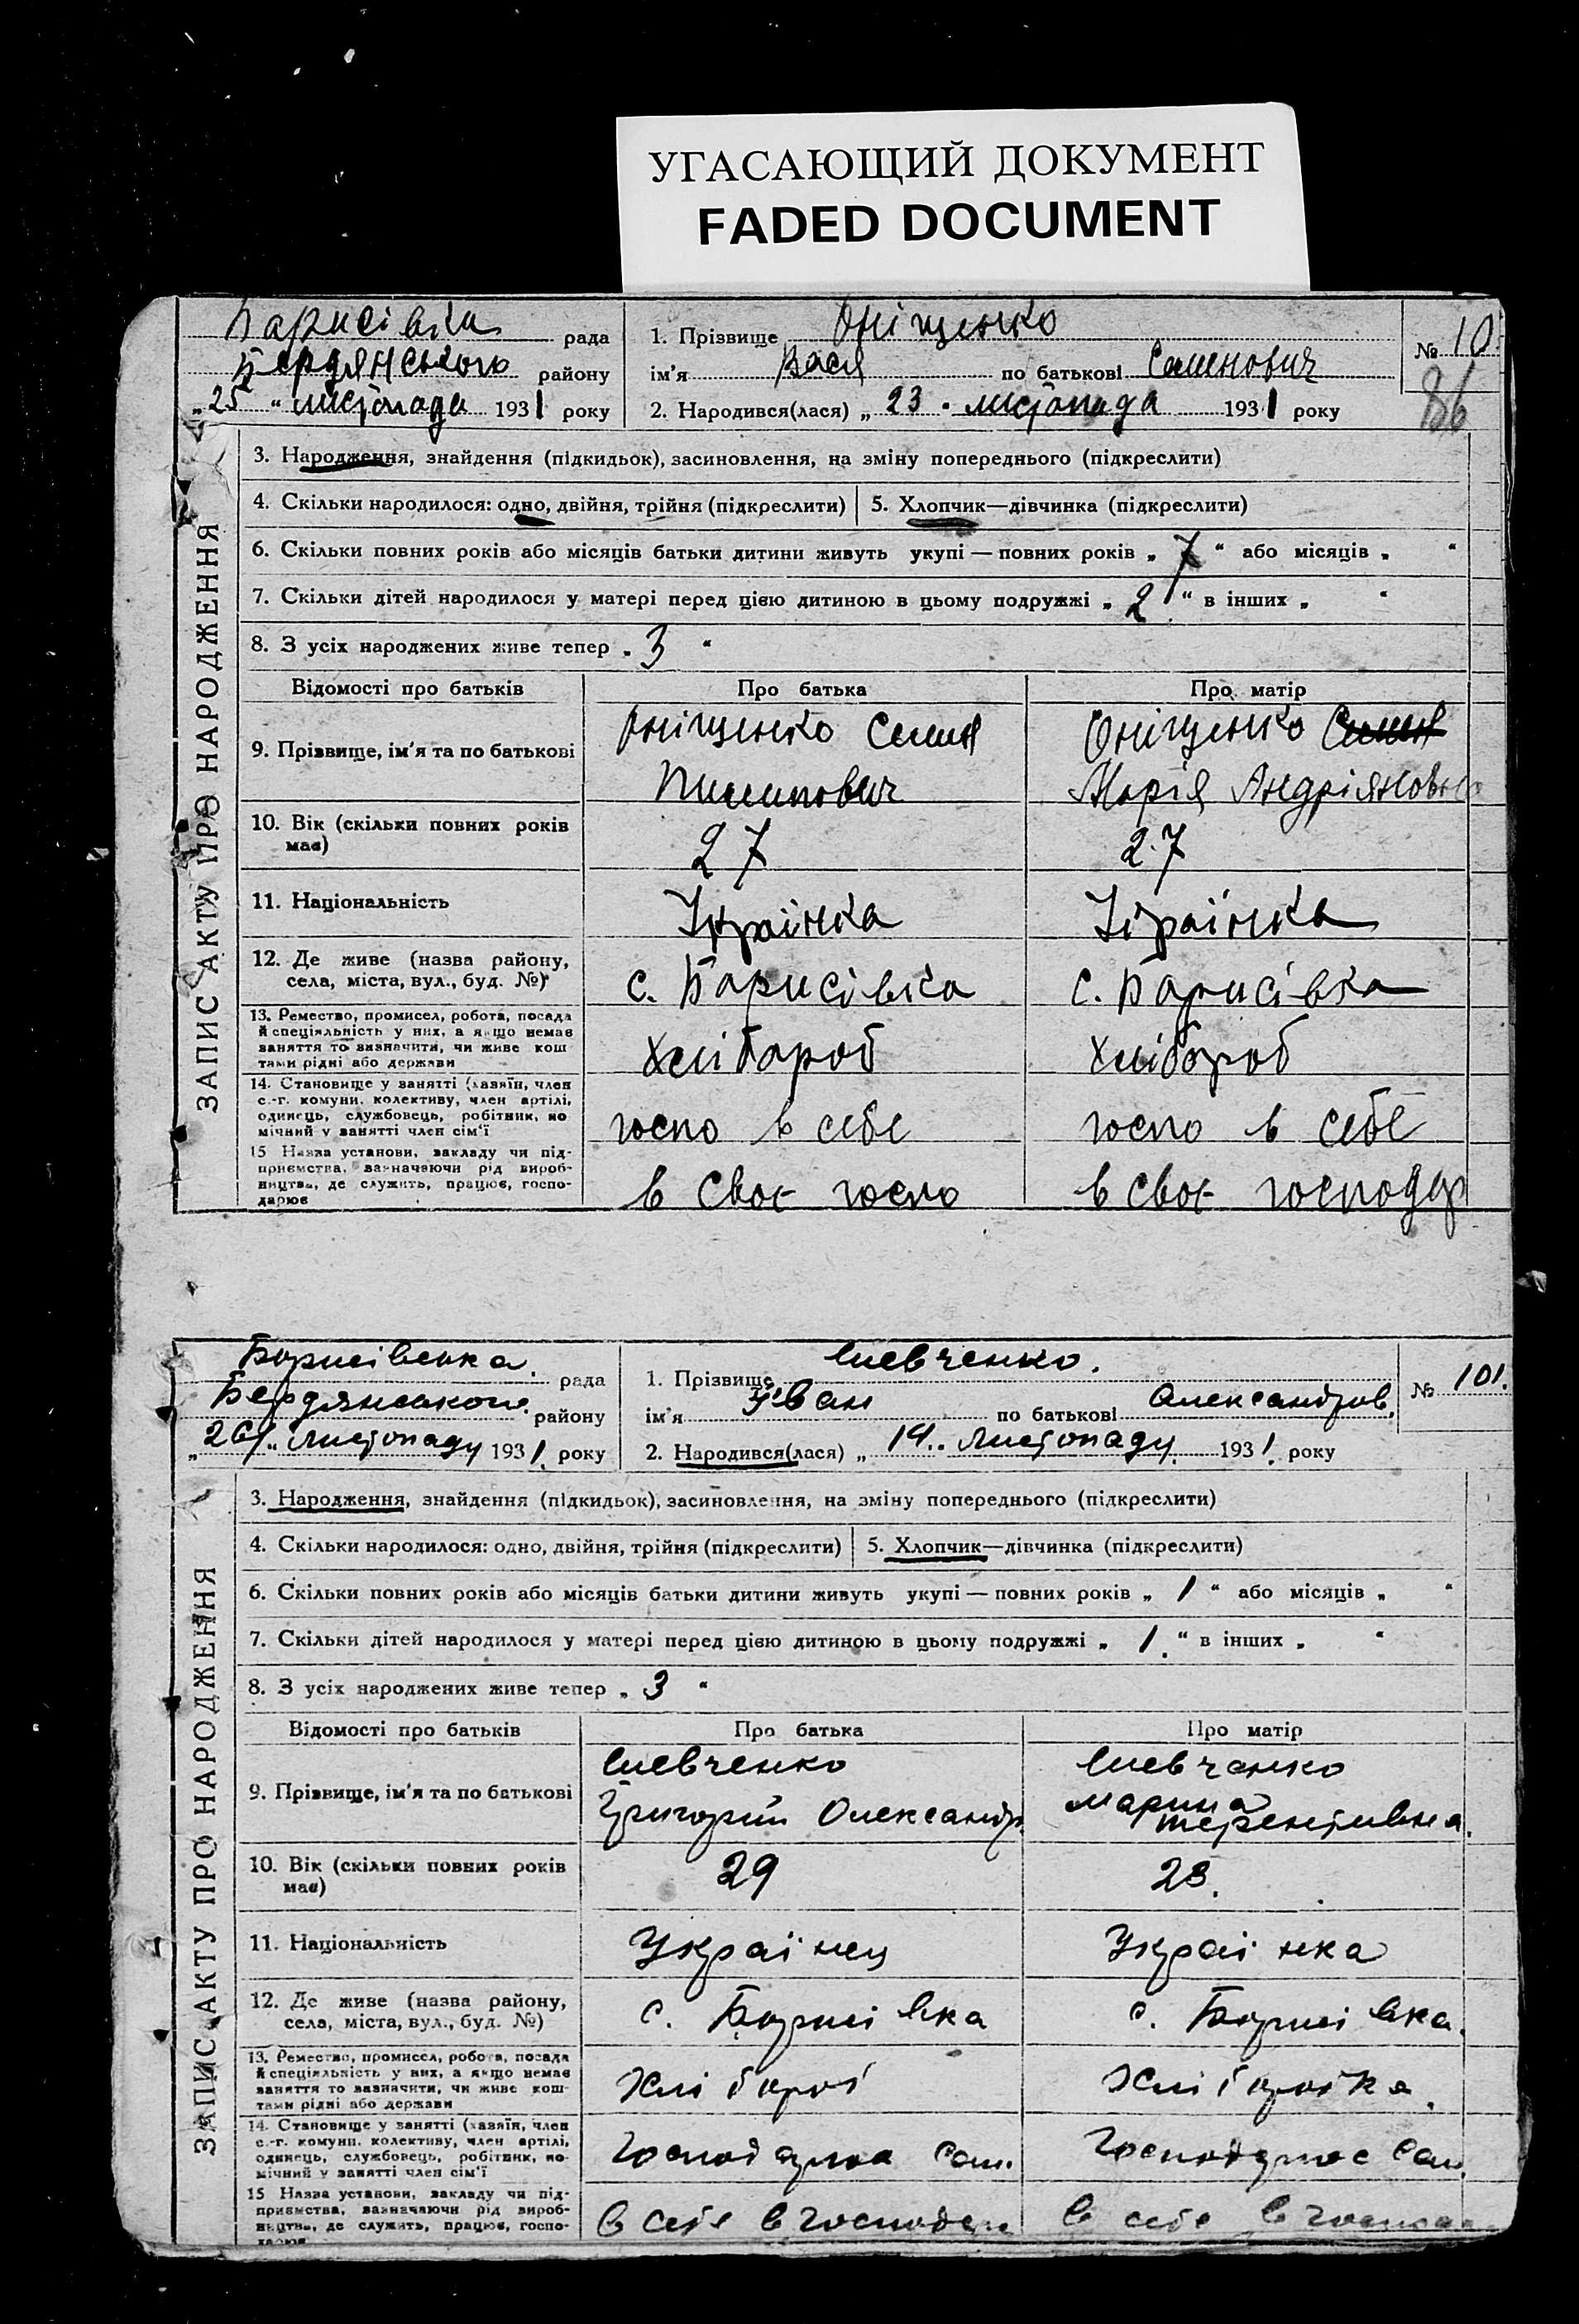 УГАСАЮЩИЙ ДОКУМЕНТ
FADED DOCUMENT
Барисівка рада
Бердянського району
„25“ листопада 1931 року
1. Прізвище Оніщенко
ім'я Вася по батькові Семенович
2. Народився(лася) „23“ листопада 1931 року
№ 10
86
ЗАПИС АКТУ ПРО НАРОДЖЕННЯ
3. Народження, знайдення (підкидьок), засиновлення, на зміну попереднього (підкреслити)
4. Скільки народилося: одно, двійня, трійня (підкреслити) 5. Хлопчик—дівчинка (підкреслити)
6. Скільки повних років або місяців батьки дитини живуть укупі — повних років „7“ або місяців „ “
7. Скільки дітей народилося у матері перед цією дитиною в цьому подружжі „2“ в інших „ “
8. З усіх народжених живе тепер „3“
Відомості про батьків Про батька Про матір
9. Прізвище, ім'я та по батькові
Оніщенко Семен
Пилипович
Оніщенко Семен
Марія Андріяновна
10. Вік (скільки повних років має)
27
27
11. Національність
Українка
Українка
12. Де живе (назва району,
села, міста, вул., буд. №)
с. Барисівка
с. Барисівка
13. Ремество, промисел, робота, посада
й спеціяльність у них, а якщо немає
заняття то визначити, чи живе кош
тами рідні або держави
Хлібароб
Хлібороб
14. Становище у занятті (хазяїн, член
с.-г. комуни, колективу, член артілі,
одинець, службовець, робітник, по
мічний у занятті член сім'ї
госпо в себе
госпо в себе
15 Назва установи, закладу чи під-
приємства, зазначаючи рід вироб-
ництва, де служить, працює, госпо-
дарює
в своє госпо
в своє господар
Борисівська рада
Бердянського району
„26“ листопаду 1931. року
1. Прізвище Шевченко.
ім'я Іван по батькові Александров.
2. Народився(лася) „14“ листопаду. 1931. року
№ 101.
ЗАПИС АКТУ ПРО НАРОДЖЕННЯ
3. Народження, знайдення (підкидьок), засиновлення, на зміну попереднього (підкреслити)
4. Скільки народилося: одно, двійня, трійня (підкреслити) 5. Хлопчик—дівчинка (підкреслити)
6. Скільки повних років або місяців батьки дитини живуть укупі — повних років „1“ або місяців „ “
7. Скільки дітей народилося у матері перед цією дитиною в цьому подружжі „1.“ в інших „ “
8. З усіх народжених живе тепер „3“
Відомості про батьків Про батька Про матір
9. Прізвище, ім'я та по батькові
Шевченко
Григорій Олександр
Шевченко
Марина
Терентивна.
10. Вік (скільки повних років має)
29
28.
11. Національність
Українец
Українка
12. Де живе (назва району,
села, міста, вул., буд. №)
с. Борисівка
с. Борисівка.
13. Ремество, промисел, робота, посада
й спеціяльність у них, а якщо немає
заняття то зазначити, чи живе кош-
тами рідні або держави
Хлібороб
Хліборобка.
14. Становище у занятті (хазяїн, член
с.-г. комуни, колективу, член артілі,
одинець, службовець, робітник, по
мічний у занятті член сім'ї
сам.
сам.
15 Назва установи, закладу чи під-
приємства, зазначаючи рід вироб-
ництва, де служить, працює, госпо-
дарює
в себе в господар
в себе в господар